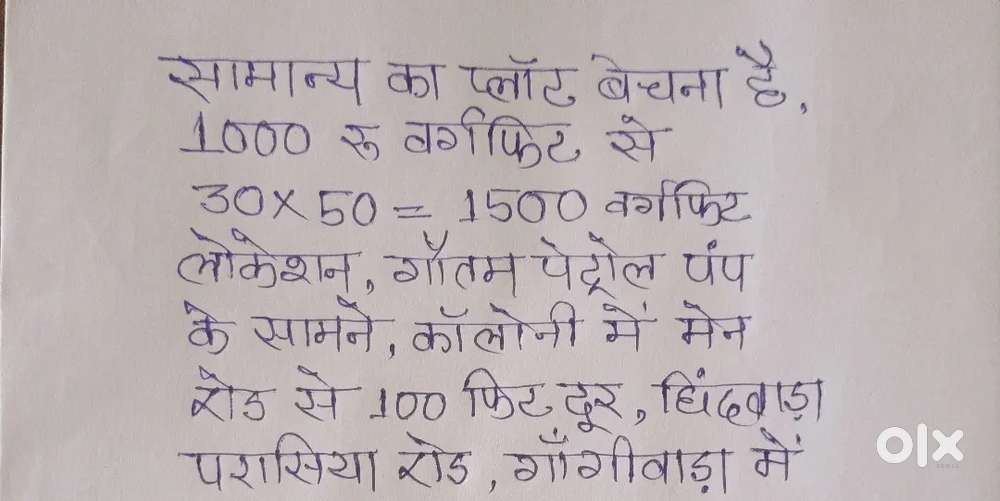 सामान्य का प्लॉट बेचना है,
1000 रु वर्गफिट से
30×50 = 1500 वर्गफिट
लोकेशन, गौतम पेट्रोल पंप
के सामने, कॉलोनी में मेन
रोड से 100 फिट दूर, छिंदवाड़ा
परासिया रोड, गाँगीवाड़ा में
olx